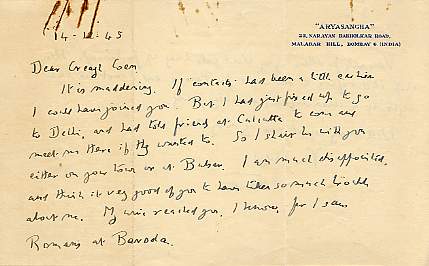 "ARYASANGHA"
22, NARAYAN DABHOLKAR ROAD,
MALABAR HILL, BOMBAY 6 (INDIA)
14-12-45
Dear Creagh Coen
It is maddening. If contacts had been a little earlier
I could have joined you. But I had just fixed up to go
to Delhi, and had told friends at Calcutta to come and
meet me there if they wanted to. So I shan't be with you
either on your tour or at Bulsar. I am much disappointed,
and think it very good of you to have taken so much trouble
about me. My wire reached you, I know, for I saw
Romans at Baroda.